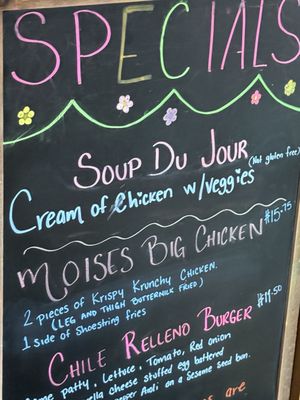 SPECIALS
SOUP DU JOUR
(Not gluten free)
Cream of Chicken w/veggies
MOISES BIG CHICKEN $15.75
2 pieces of Krispy Krunchy Chicken.
(LEG AND THIGH BUTTERMILK FRIED)
1 side of Shoestring fries
CHILE RELLENO BURGER $14.50
patty, Lettuce, Tomato, Red onion
Cheese stuffed egg battered
pepper Aioli on a Sesame seed bun.
are